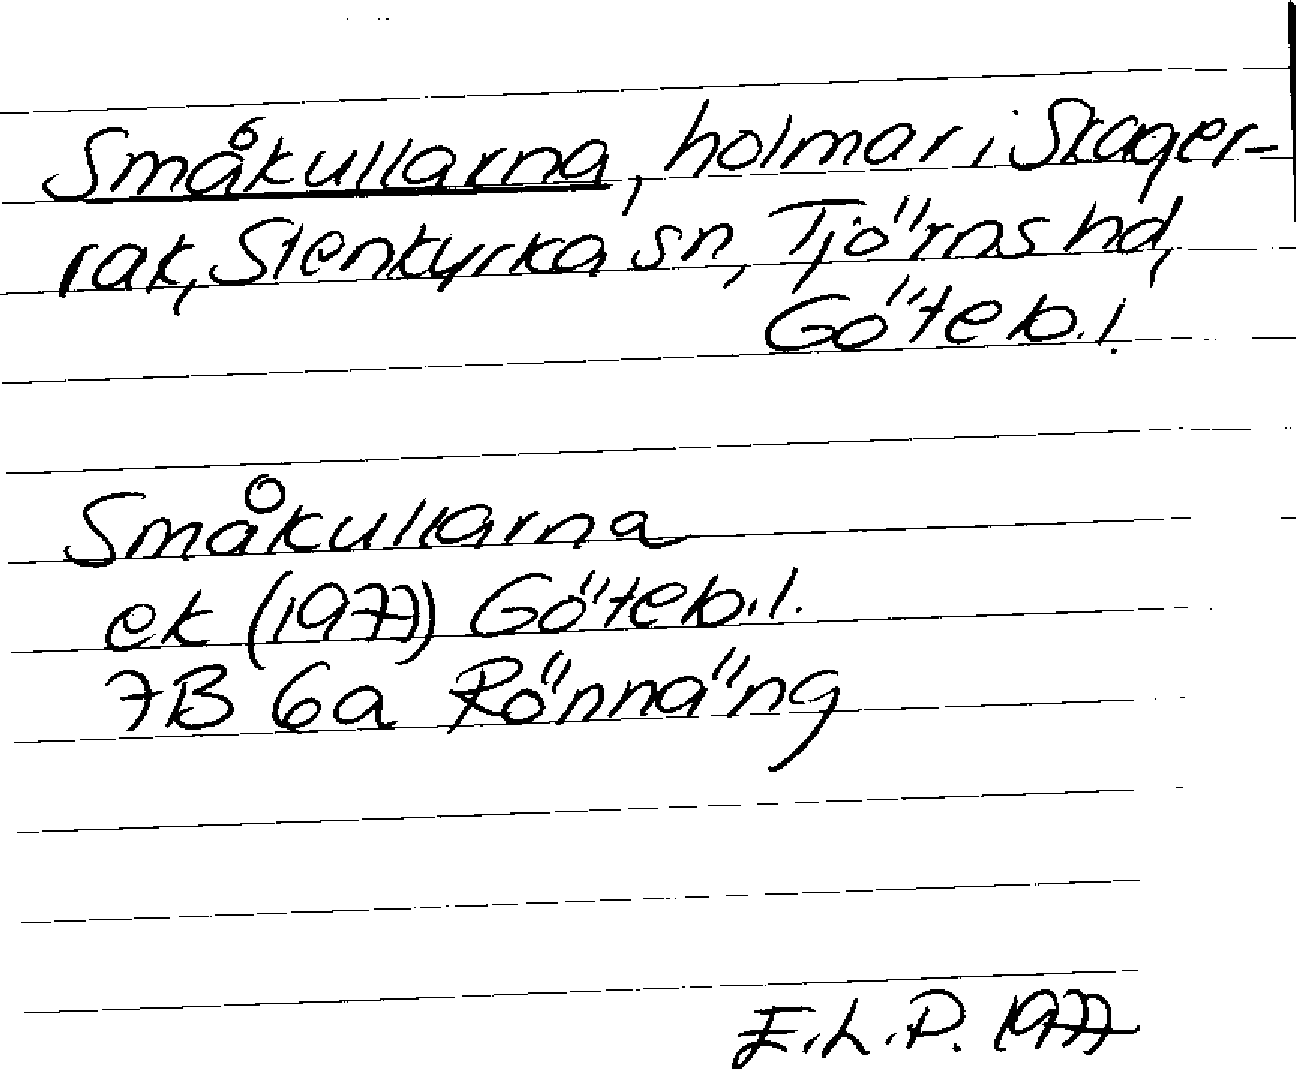 Småkullarna, holmar i Skager-
rak, Stenkyrka sn, Tjörns hd,
Göteb. l.
Småkullarna
ek (1977) Göteb. l.
7B 6a Rönnäng
E.L.P. 1977